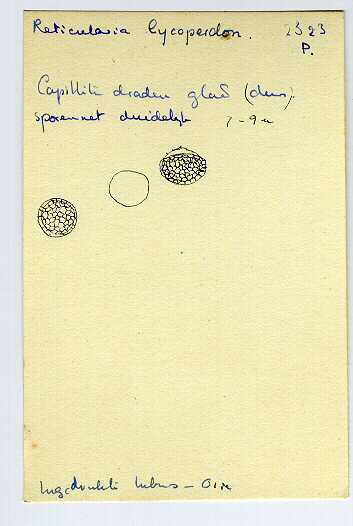 Reticularia lycoperdon. 2323
P.
Capillitium draden glad (dun).
sporennet duidelijk 7-9 u